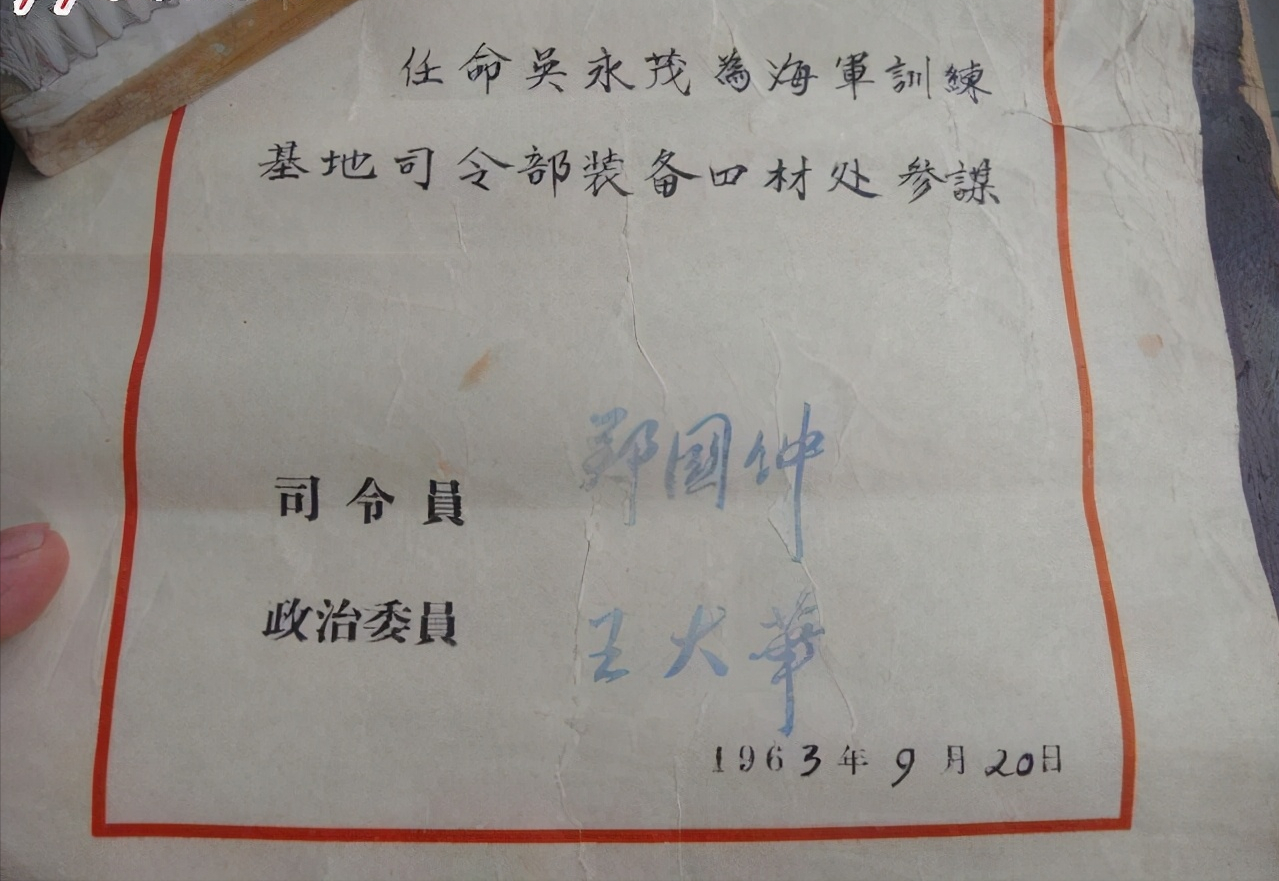 任命吳永茂為海軍訓練
基地司令部装备四材处參謀
司令員 鄭國仲
政治委員 王大華
1963年9月20日